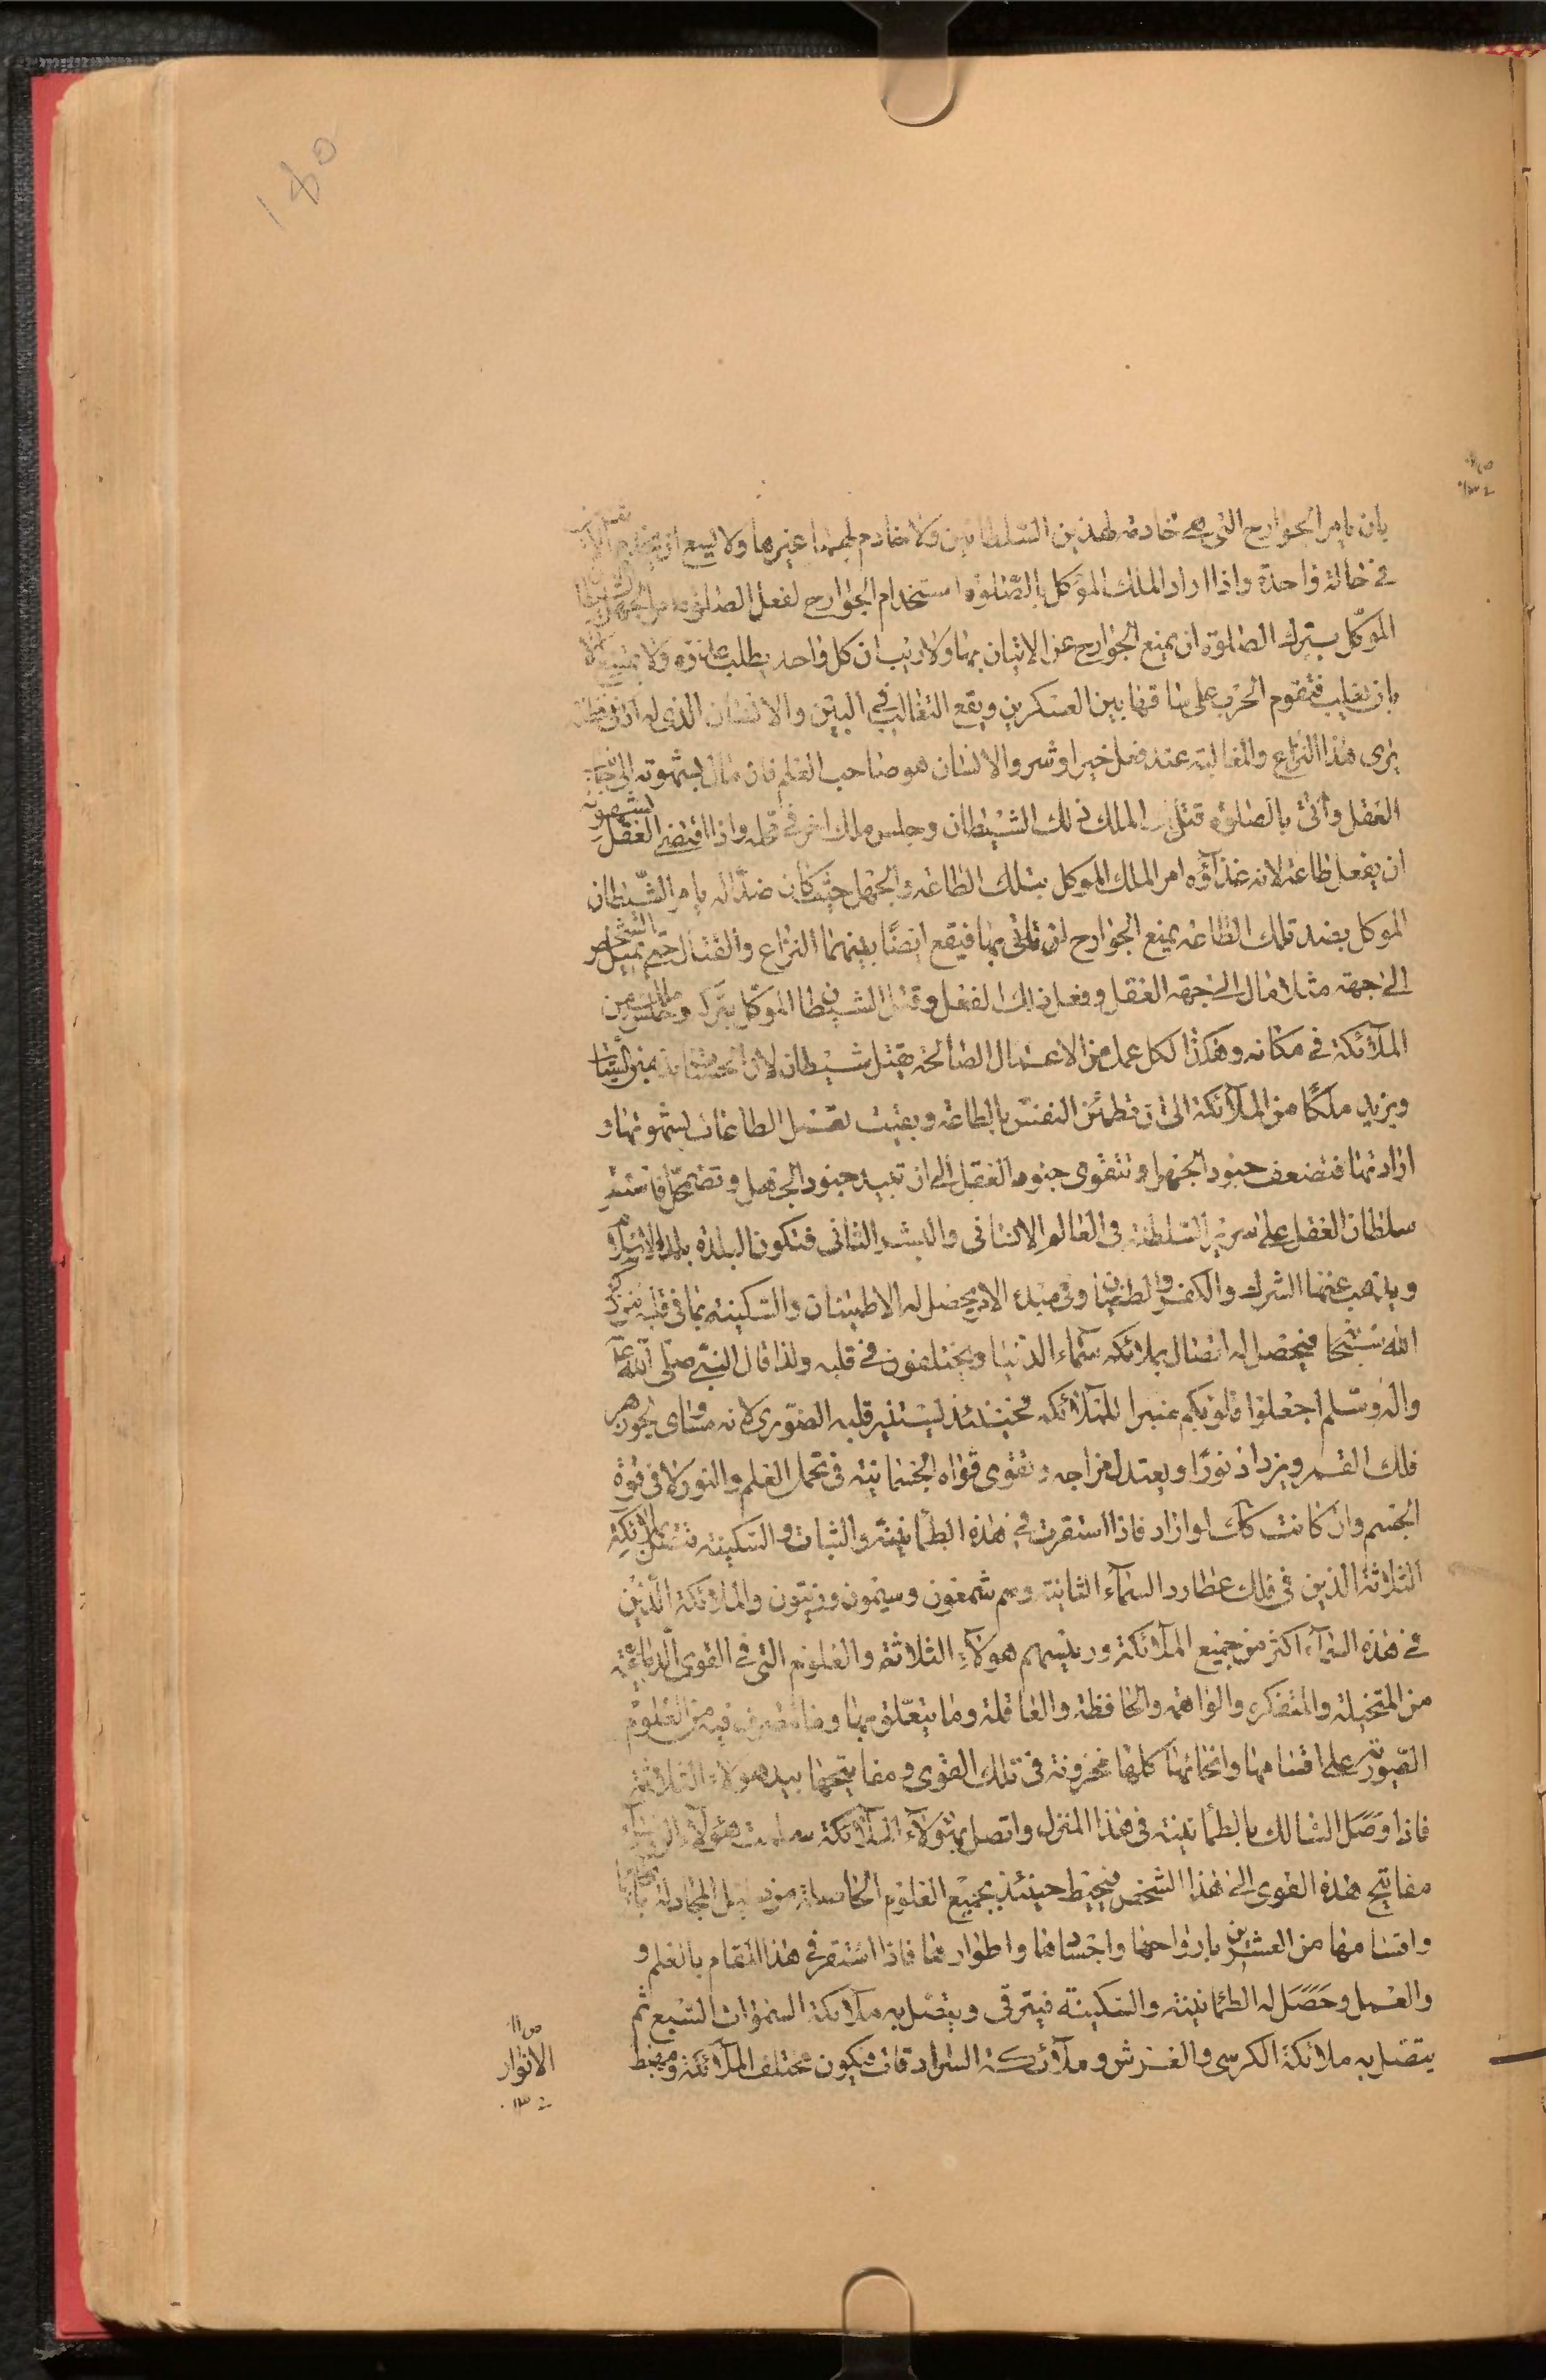 ١٤٥
بان يامر الجوارح التي هي خادمة لهذين السلطانين ولا خادم لهما غيرها ولا يسع ان
في حالة واحدة واذا اراد الملك الموكل بالصلوة استخدام الجوارح لفعل الصلوة
الموكل بترك الصلوة ان يمنع الجوارح عن الاتيان بها ولا ريب ان كل واحد يطلب
بان يغلب فتقوم الحرب على ساقها بين العسكرين ويقع التغالب في البين والانسان الذي له ادنى
يرى هذا النزاع والمغالبة عند فعل خير او شر والانسان هو صاحب العلم فان مال بشهوته الى
العقل واتى بالصلوة قتل الملك ذلك الشيطان وجلس ملك اخر في محله واذا اقتضى العقل بشهوته
ان يفعل طاعة لانه غذاؤه امر الملك الموكل بتلك الطاعة والجهل حيث كان ضدا له يامر الشيطان
الموكل بضد تلك الطاعة يمنع الجوارح لان تاتي بها فيقع ايضا بينهما النزاع والقتال حتى يميل الشخص
الى جهة مثلا مال الى جهة العقل وفعل ذلك الفعل وقتل الشيطان الموكل بتركه وجلس ملك من
الملائكة في مكانه وهكذا لكل عمل من الاعمال الصالحة يقتل شيطان لان الحسنات يذهبن السيئات
ويزيد ملكا من الملائكة الى ان تطمئن النفس بالطاعة وبقيت تفعل الطاعات بشهوتها و
ارادتها فتضعف جنود الجهل وتتقوى جنود العقل الى ان تبيد جنود الجهل وتضمحل فاستقر
سلطان العقل على سرير السلطنة في العالم الانساني والبشر الثاني فتكون البلدة بلدة الاسلام
ويذهب عنها الشرك والكفر والطغيان وفي مبدء الامر يحصل له الاطمينان والسكينة بما في قلبه من ذكر
الله سبحانه فيحصل له اتصال بملائكة سماء الدنيا ويختلفون في قلبه ولذا قال النبي صلى الله عليه
واله وسلم اجعلوا قلوبكم منبرا للملائكة فحينئذ يستنير قلبه الصنوبري لانه مساوي لجوزهر
فلك القمر ويزداد نورا ويعتدل مزاجه وتقوى قواه الجسمانية في تحمل العلم والنور لا في قوة
الجسم وان كانت كك لو اراد فاذا استقرت في هذه الطمانينة والثبات والسكينة فتتصل بملائكة
الثلاثة الذين في فلك عطارد السماء الثانية وهم شمعون وسيمون وزيتون والملائكة الذين
في هذه السماء اكثر من جميع الملائكة ورئيسهم هولاء الثلاثة والعلوم التي في القوى الدماغية
من المتخيلة والمتفكرة والواهمة والحافظة والعاقلة وما يتعلق بها وما تتصرف فيه من العلوم
الصورية على اقسامها وانحائها كلها مخزونة في تلك القوى ومفاتيحها بيد هولاء الثلاثة
فاذا وصل السالك بالطمانينة في هذا المنزل واتصل بهولاء الملائكة سلمت هولاء
مفاتيح هذه القوى الى هذا الشخص فيحيط حينئذ بجميع العلوم الحاصلة من دليل المجادلة
واقسامها من العشرين بارواحها واجسادها واطوارها فاذا استقر في هذا المقام بالعلم و
والعمل وحصل له الطمانينة والسكينة فيترقى ويتصل به ملائكة السموات السبع ثم
يتصل به ملائكة الكرسي والعرش وملائكة السرادقات فيكون مختلف الملائكة ومهبط
ص ١١
الانوار